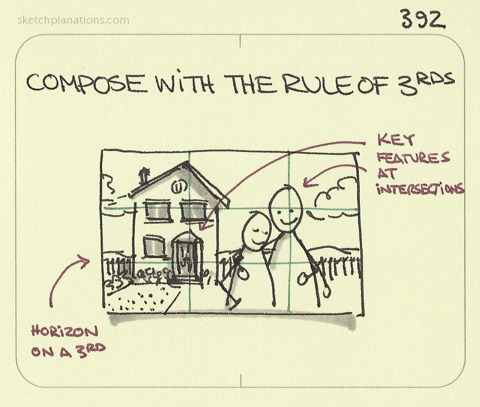 sketchplanations.com
392
COMPOSE WITH THE RULE OF 3RDS
KEY
FEATURES
AT
INTERSECTIONS
HORIZON
ON A 3RD